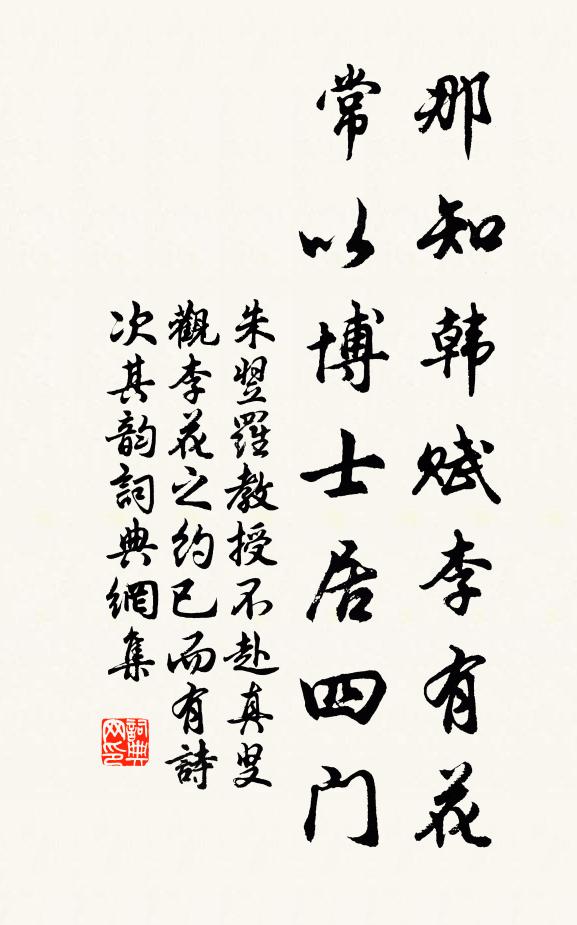 那知韩赋李有花
常以博士居四门
朱翌羅教授不赴真叟
觀李花之约已而有詩
次其韵詞典網集
詞典网印